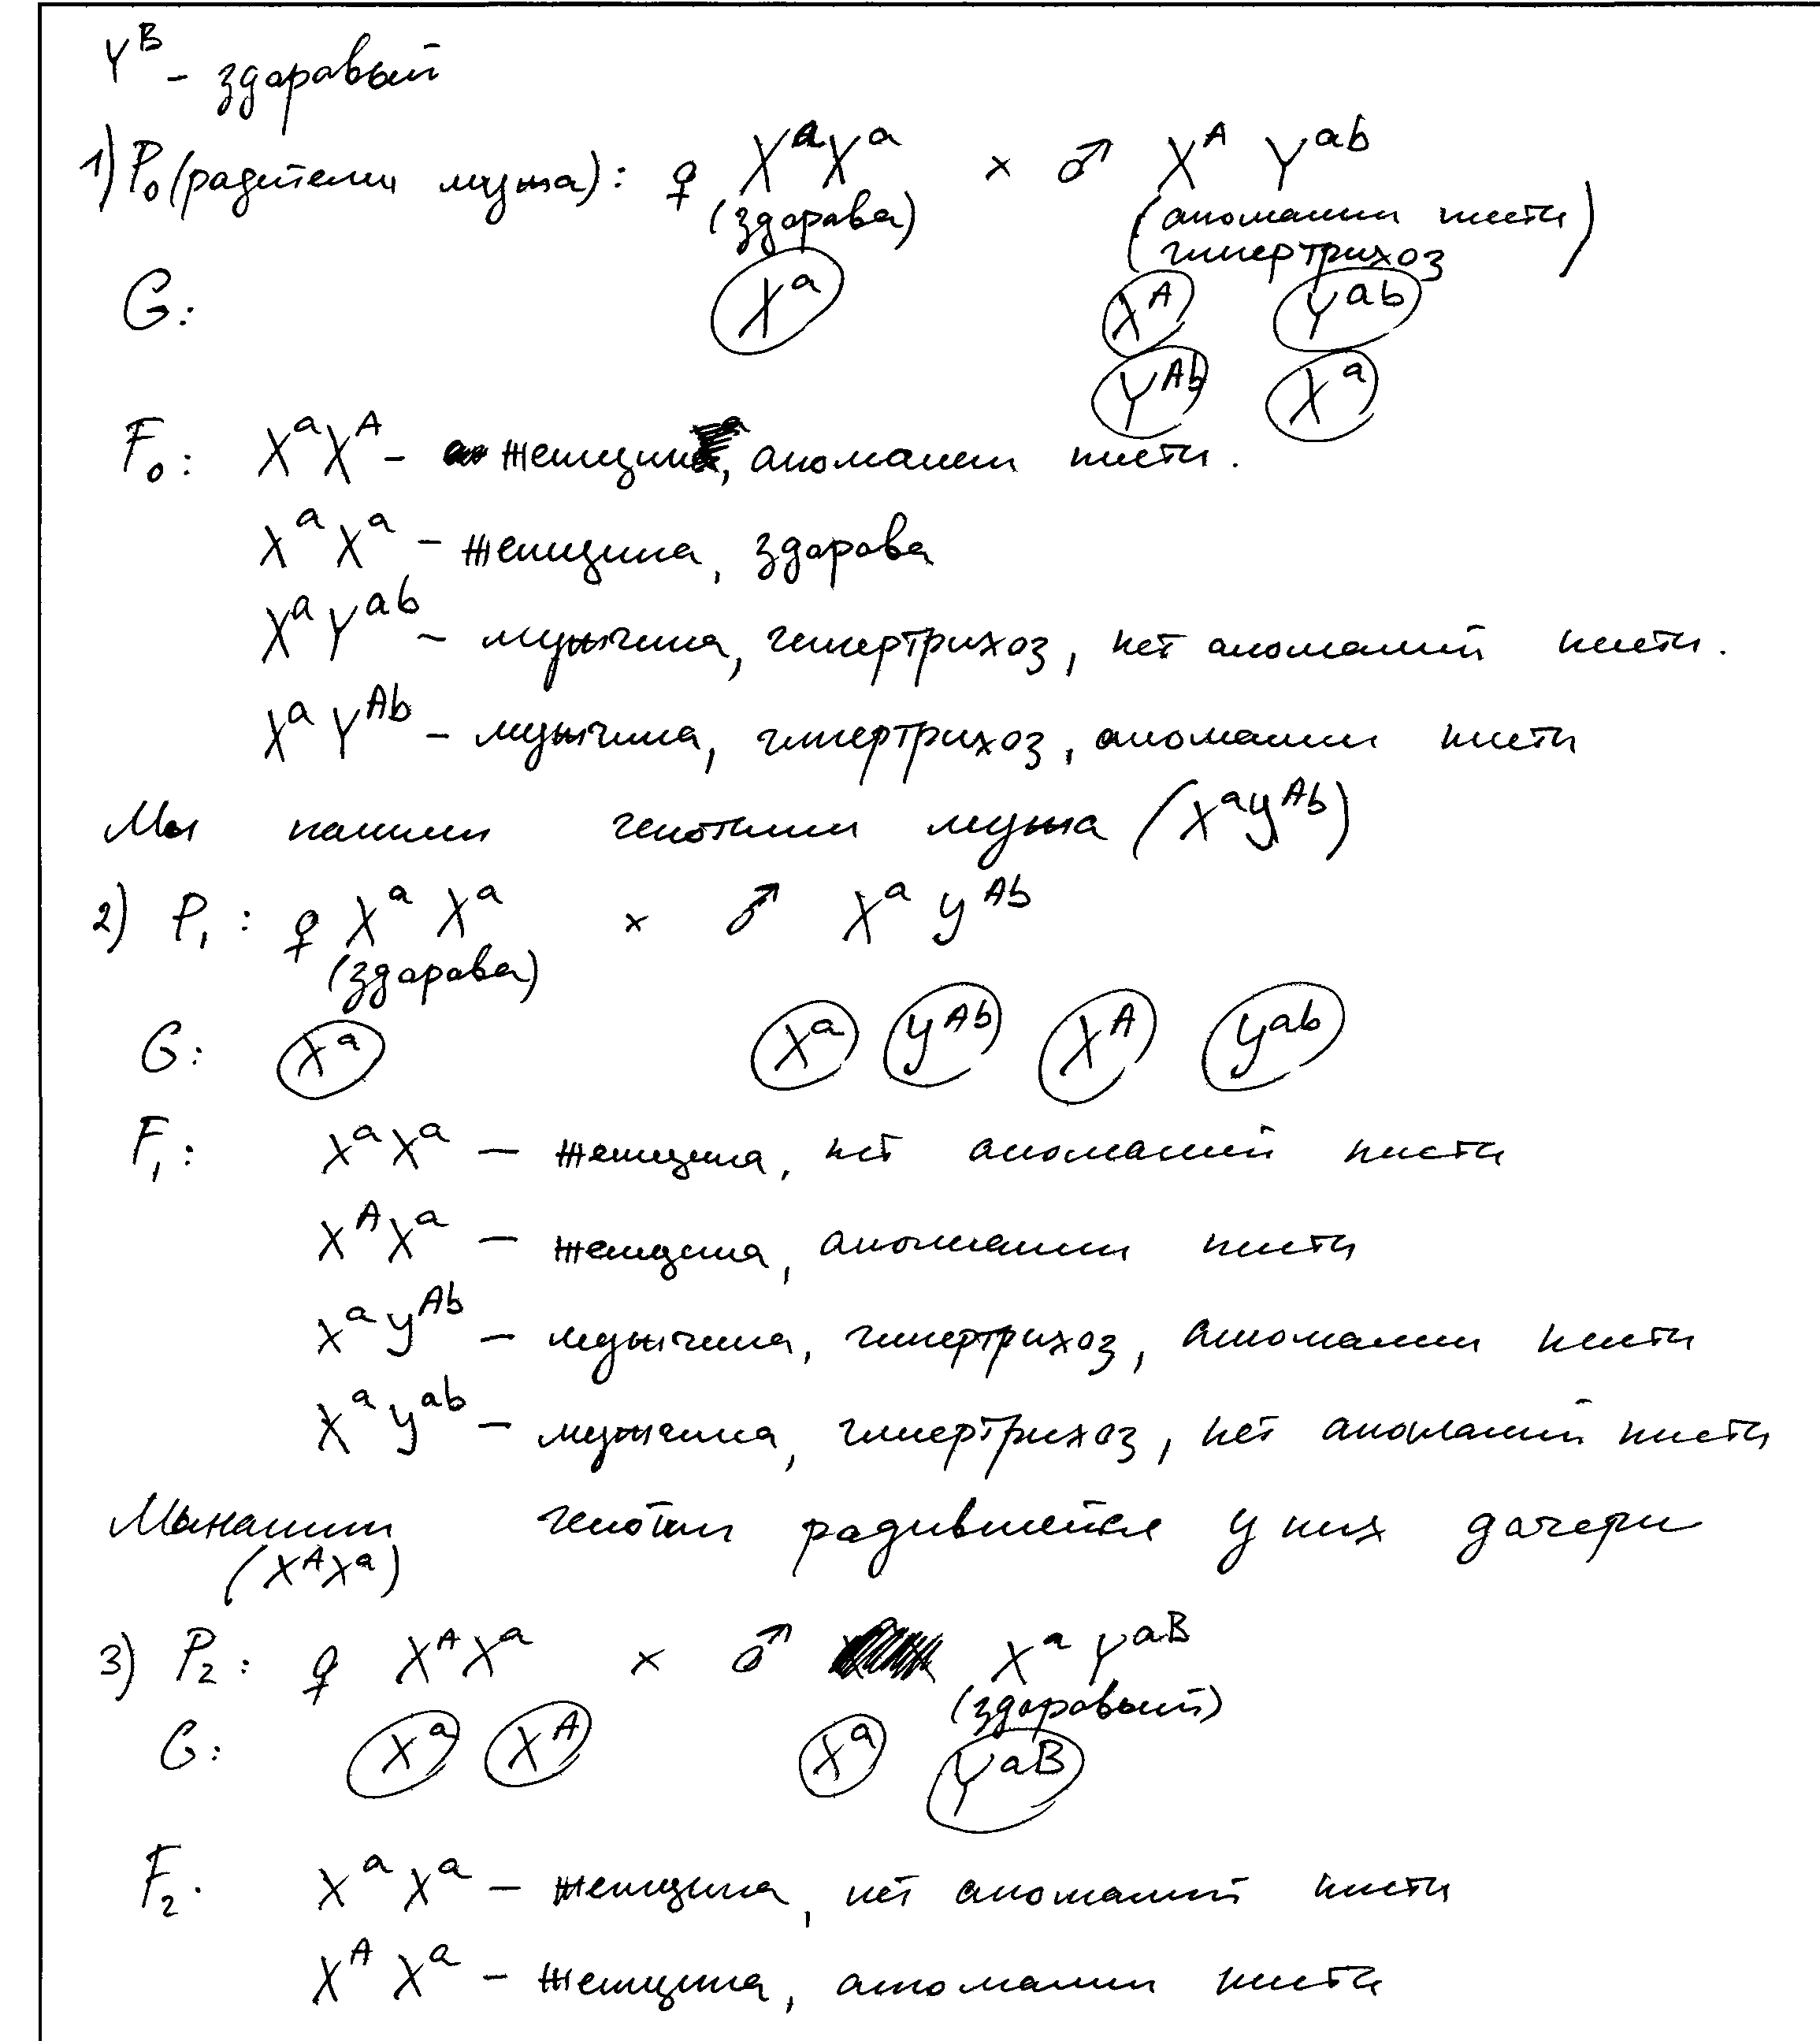 Y^B - здоровый
1) P₀ (родители мужа): ♀ X^a X^a × ♂ X^A Y^ab
(здорова) (аномалии кисти
гипертрихоз)
G: X^a X^A Y^ab
Y^Ab X^a
F₀: X^a X^A - женщина, аномалии кисти.
X^a X^a - женщина, здорова
X^a Y^ab - мужчина, гипертрихоз, нет аномалий кисти.
X^a Y^Ab - мужчина, гипертрихоз, аномалии кисти
Мы нашли генотип мужа (X^a Y^Ab)
2) P₁: ♀ X^a X^a × ♂ X^a Y^Ab
(здорова)
G: X^a X^a Y^Ab X^A Y^ab
F₁: X^a X^a - женщина, нет аномалий кисти
X^A X^a - женщина, аномалии кисти
X^a Y^Ab - мужчина, гипертрихоз, аномалии кисти
X^a Y^ab - мужчина, гипертрихоз, нет аномалий кисти
Мы нашли генотип родившейся у них дочери
(X^A X^a)
3) P₂: ♀ X^A X^a × ♂ X^a Y^aB
(здоровый)
G: X^a X^A X^a Y^aB
F₂. X^a X^a - женщина, нет аномалий кисти
X^A X^a - женщина, аномалии кисти